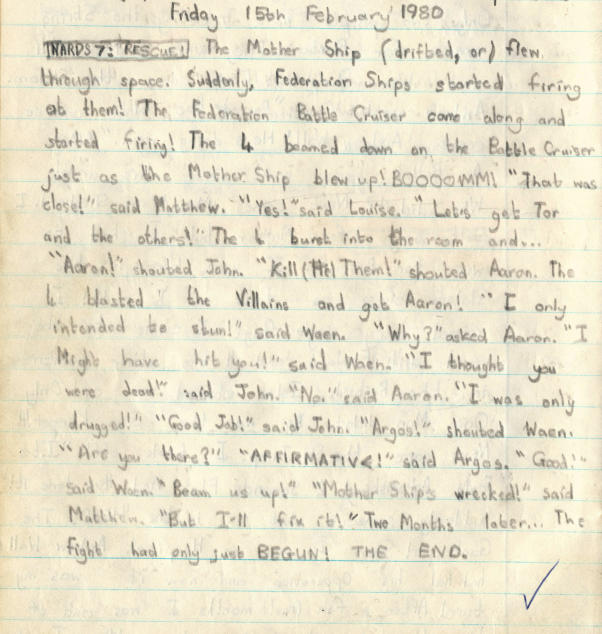 Friday 15th February 1980
INARDS 7: RESCUE! The Mother Ship (drifted, or) flew
through space. Suddenly, Federation Ships started firing
at them! The Federation Battle Cruiser came along and
started firing! The 4 beamed down on the Battle Cruiser
just as the Mother Ship blew up! BOOOOMM! "That was
close!" said Matthew. "Yes!" said Louise. "Let's get Tor
and the others!" The 4 burst into the room and...
"Aaron!" shouted John. "Kill (The) Them!" shouted Aaron. The
4 blasted the Villains and got Aaron! "I only
intended to stun!" said Waen. "Why?" asked Aaron. "I
Might have hit you!" said Waen. "I thought you
were dead!" said John. "No." said Aaron. "I was only
drugged!" "Good Job!" said John. "Argos!" shouted Waen.
"Are you there?" "AFFIRMATIVE!" said Argos. "Good!"
said Waen. "Beam us up!" "Mother Ship's wrecked!" said
Matthew. "But I'll fix it!" Two Months later... The
fight had only just BEGUN! THE END.